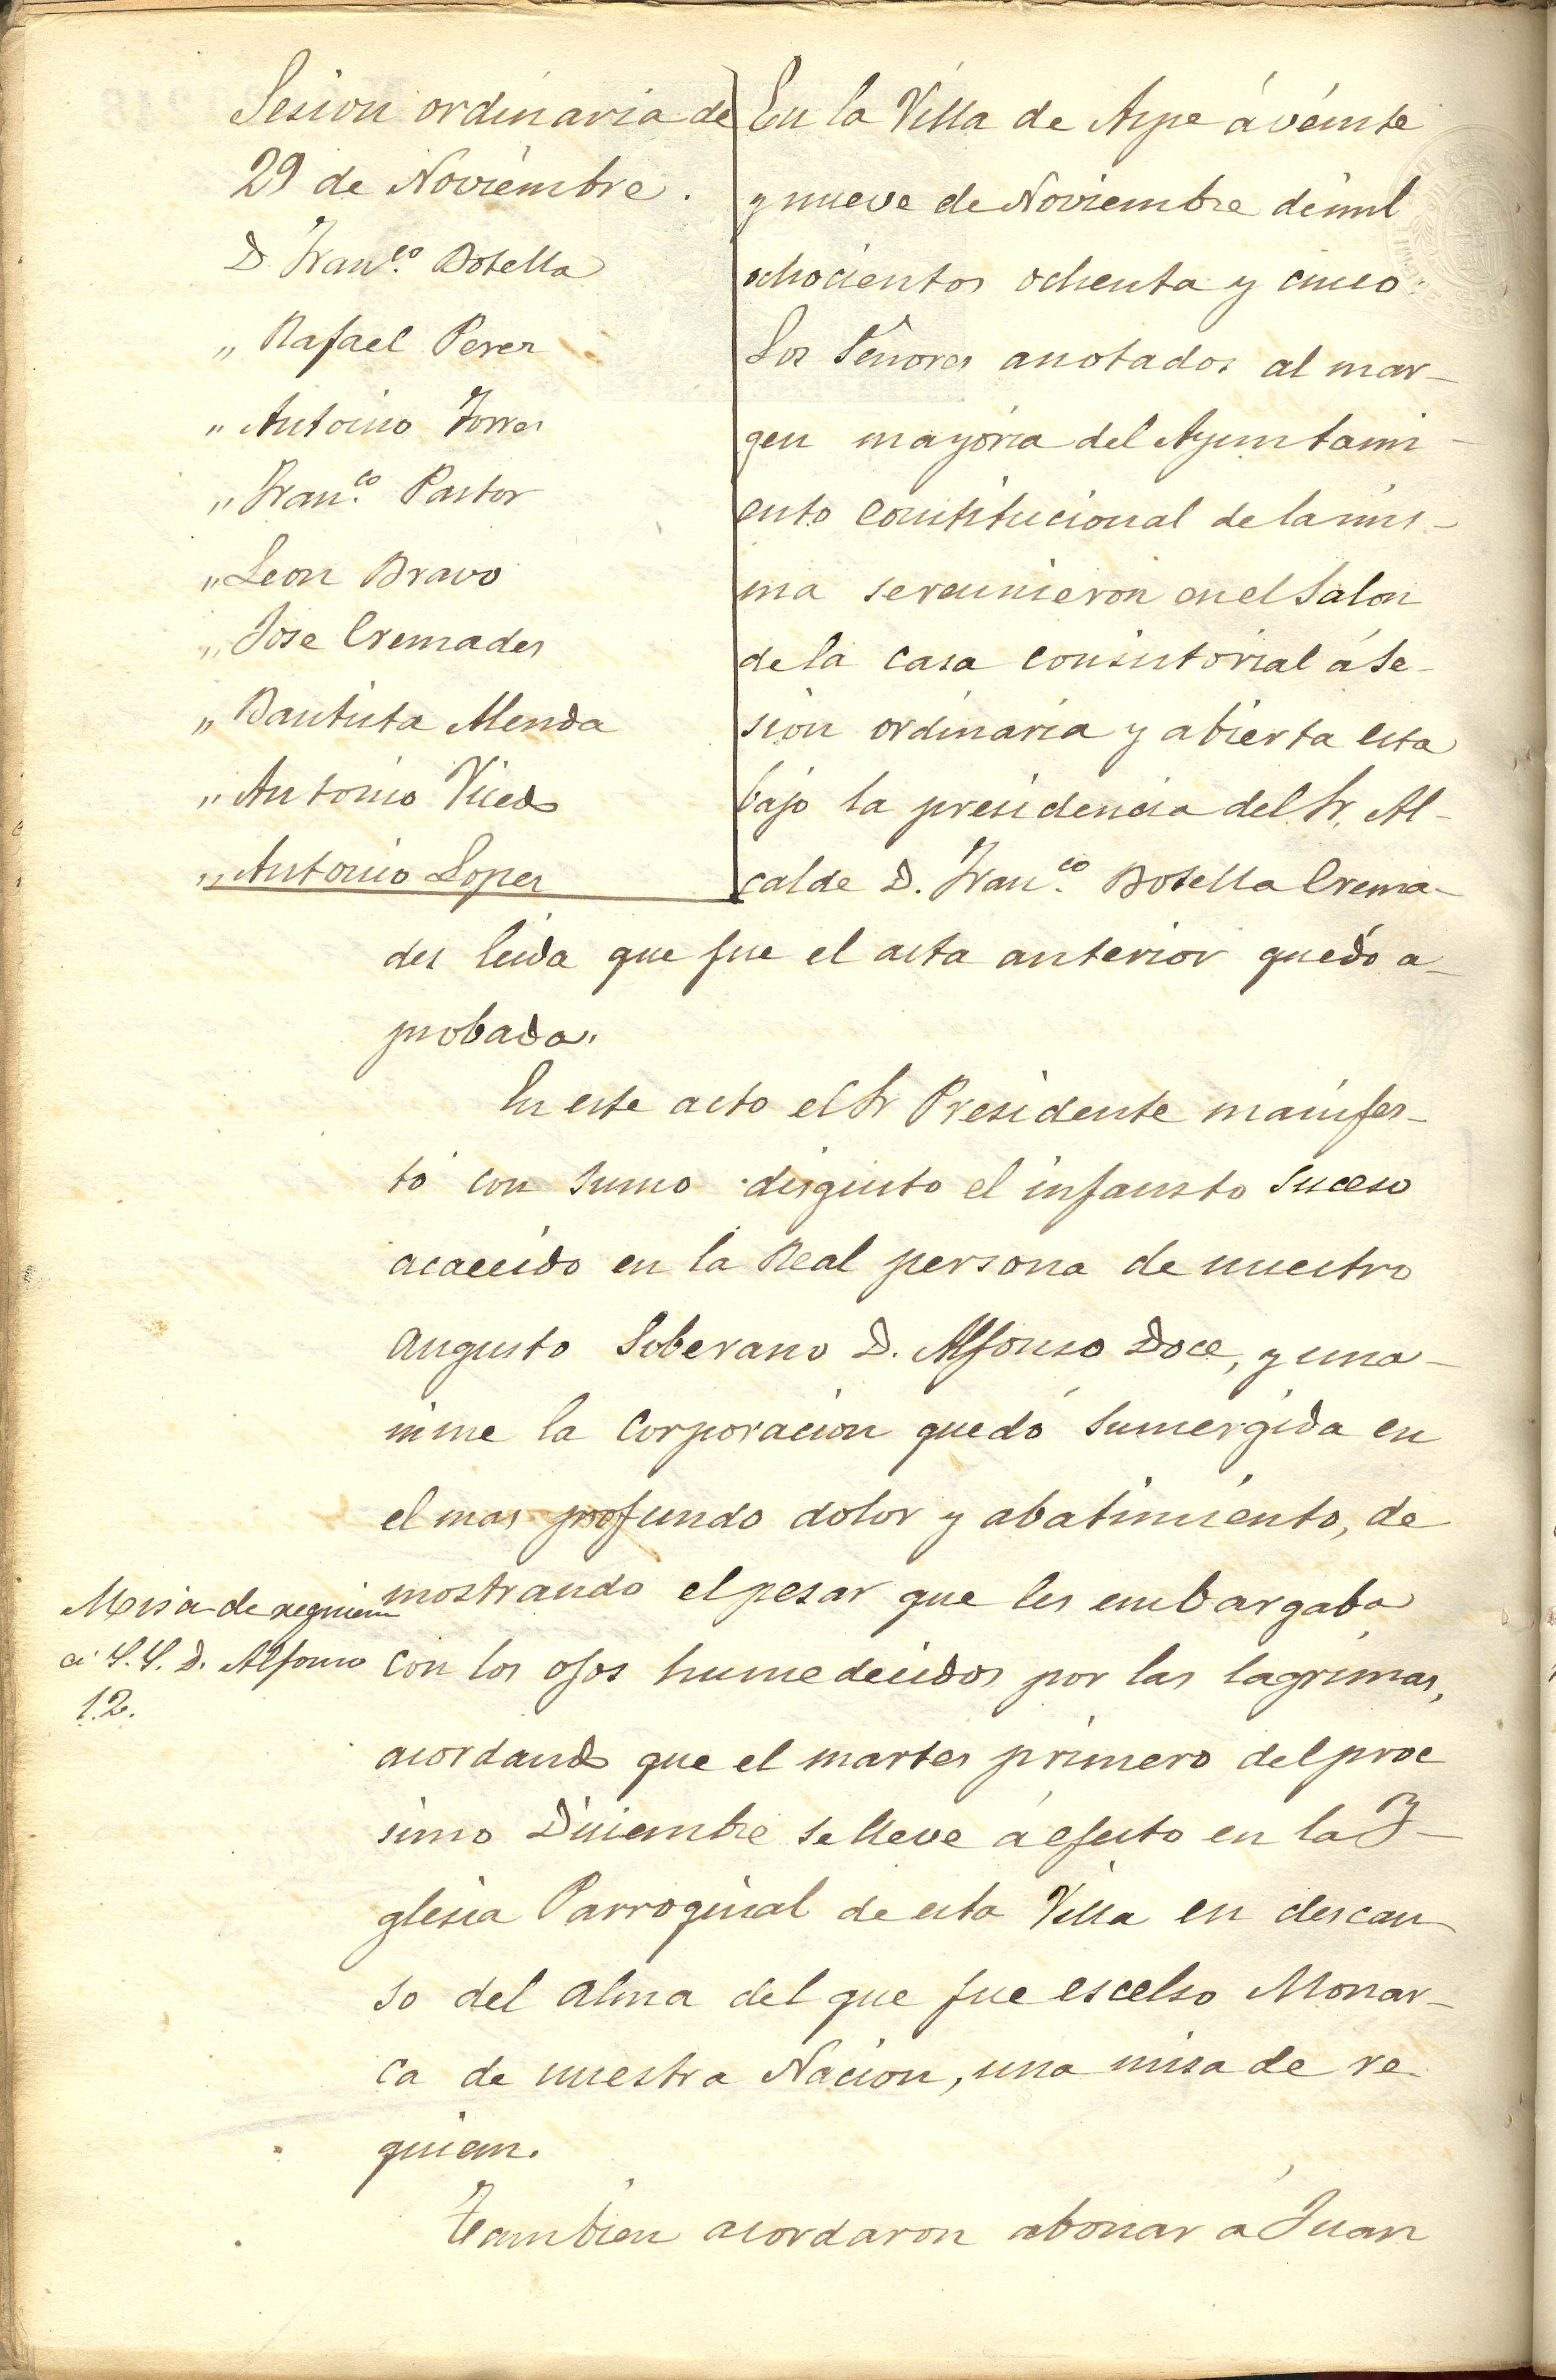 Sesion ordinaria de
29 de Noviembre.
D. Fran.co Botella
" Rafael Perez
" Antonio Torres
" Fran.co Pastor
" Leon Bravo
" Jose Cremades
" Bautista Almenda
" Antonio Vicedo
" Antonio Lopez
En la Villa de Aspe á veinte
y nueve de Noviembre de mil
ochocientos ochenta y cinco.
Los Señores anotados al mar-
gen mayoria del Ayuntami-
ento Constitucional de la mis-
ma se reunieron en el Salon
de la casa Consistorial á Se-
sion ordinaria y abierta esta
bajo la presidencia del Sr. Al-
calde D. Fran.co Botella Crema-
des leida que fue el acta anterior quedó a-
probada.
En este acto el Sr Presidente manifes-
tó con sumo disgusto el infausto suceso
acaecido en la Real persona de nuestro
Augusto Soberano D. Alfonso Doce, y una-
nime la Corporacion quedó sumergida en
el mas profundo dolor y abatimiento, de
mostrando el pesar que les embargaba
con los ojos humedecidos por las lagrimas,
acordando que el martes primero del proc
simo Diciembre se lleve á efecto en la I-
glesia Parroquial de esta Villa en descan
so del alma del que fue escelso Monar-
ca de nuestra Nacion, una misa de re-
quiem.
Tambien acordaron abonar á Juan
Misa de requiem
á S. S. D. Alfonso
12.